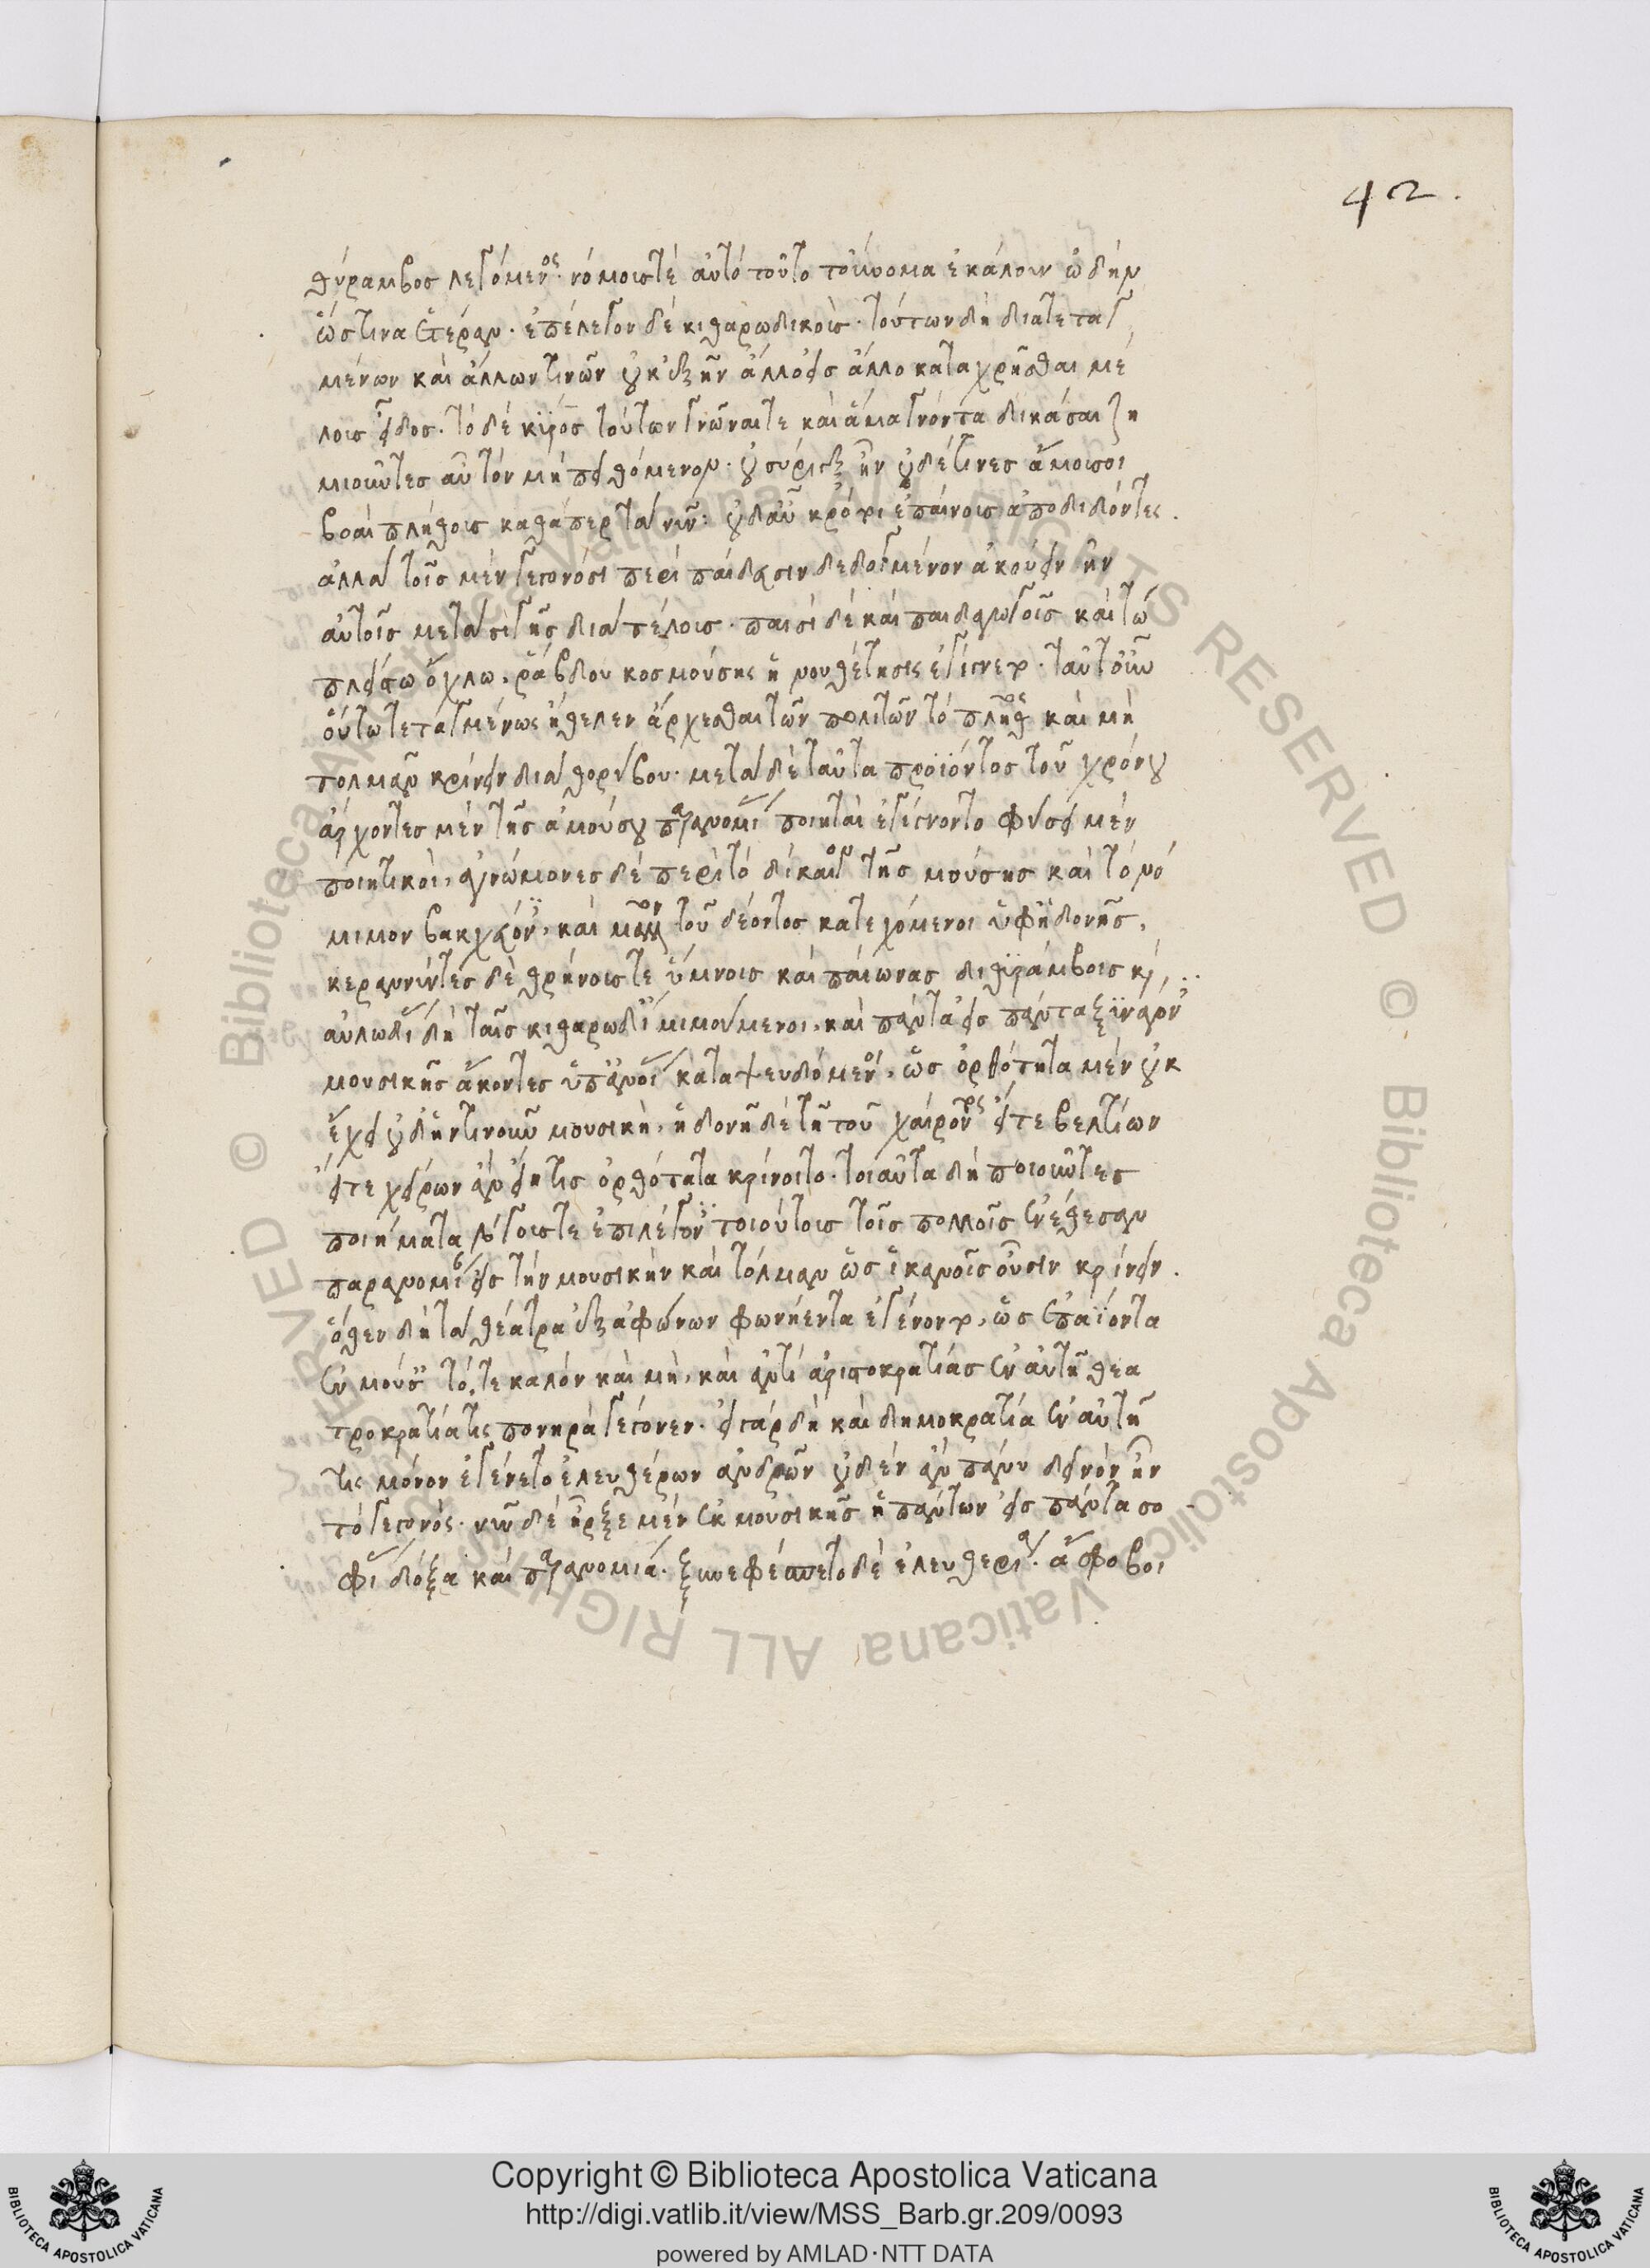 42.
θύραμβος λεγόμενος. νόμοις τὲ αὐτὸ τοῦτο τοὔνομα ἐκάλουν ὠδὴν
ὥς τινα ἑτέραν. ἐπέλεγον δὲ κιθαρωδικοῖς. τούτων δὴ διατεταγ
μένων καὶ ἄλλων τινῶν οὐκ ἐξῆν ἄλλο εἰς ἄλλο καταχρῆσθαι μέ
λους εἶδος. τὸ δὲ κῦρος τούτων γνῶναι τε καὶ ἅμα γνόντα δικάσαι ζη
μιοῦντες αὖ τὸν μὴ πειθόμενον. οὐ σύριξ ἦν οὐδέ τινες ἄμουσοι
βοαὶ πλήθους καθάπερ τὰ νῦν: οὐδ' αὖ κρότοι ἐπαίνους ἀποδιδόντες.
ἀλλὰ τοῖς μὲν γεγονόσι περὶ παίδευσιν δεδογμένον ἀκούειν ἦν
αὐτοῖς μετὰ σιγῆς διὰ τέλους. παισὶ δὲ καὶ παιδαγωγοῖς καὶ τῶ
πλείστω ὄχλω, ῥάβδου κοσμούσης ἡ νουθέτησις ἐγίγνετο. ταῦτ' οὖν
οὕτω τεταγμένως ἤθελεν ἄρχεσθαι τῶν πολιτῶν τὸ πλῆθος καὶ μὴ
τολμᾶν κρίνειν διὰ θορύβου. μετὰ δὲ ταῦτα προϊόντος τοῦ χρόνου
ἄρχοντες μὲν τῆς ἀμούσου παρανομίας ποιηταὶ ἐγίγνοντο φύσει μὲν
ποιητικοὶ, ἀγνώμονες δὲ περὶ τὸ δίκαιον τῆς μούσης καὶ τὸ νό
μιμον βακχεύοντες, καὶ μᾶλλον τοῦ δέοντος κατεχόμενοι ὑφ' ἡδονῆς,
κεραννύντες δὲ θρήνους τε ὕμνοις καὶ παίωνας διθυράμβοις καὶ
αὐλωδίας δὴ ταῖς κιθαρωδίαις μιμούμενοι, καὶ πάντα εἰς πάντα ξυνάγοντες
μουσικῆς ἄκοντες ὑπ' ἀνοίας καταψευδόμενοι, ὡς ὀρθότητα μὲν οὐκ
ἔχει οὐδ' ἥντινοῦν μουσικὴ, ἡδονῆ δὲ τῆ τοῦ χαίροντος εἴτε βελτίων
εἴτε χείρων ἂν εἴη τις ὀρθότατα κρίνοιτο. τοιαῦτα δὴ ποιοῦντες
ποιήματα λόγους τε ἐπιλέγοντες τοιούτους τοῖς πολλοῖς ἐνέθεσαν
παρανομίαν εἰς τὴν μουσικὴν καὶ τόλμαν ὡς ἱκανοῖς οὖσιν κρίνειν.
ὅθεν δὴ τὰ θέατρα ἐξ ἀφώνων φωνήεντα ἐγένοντο, ὡς ἐπαΐοντα
ἐν μούσαις τό, τε καλὸν καὶ μὴ, καὶ ἀντὶ ἀριστοκρατίας ἐν αὐτῆ θεα
τροκρατία τις πονηρὰ γέγονεν. εἰ γὰρ δὴ καὶ δημοκρατία ἐν αὐτῆ
τις μόνον ἐγένετο ἐλευθέρων ἀνδρῶν οὐδὲν ἂν πάνυ δεινὸν ἦν
τὸ γεγονὸς. νῦν δὲ ἦρξε μὲν ἐκ μουσικῆς ἡ πάντων εἰς πάντα σο
φίας δόξα καὶ παρανομία. ξυνεφέσπετο δὲ ἐλευθερία. ἄφοβοι
Copyright © Biblioteca Apostolica Vaticana
http://digi.vatlib.it/view/MSS_Barb.gr.209/0093
powered by AMLAD·NTT DATA